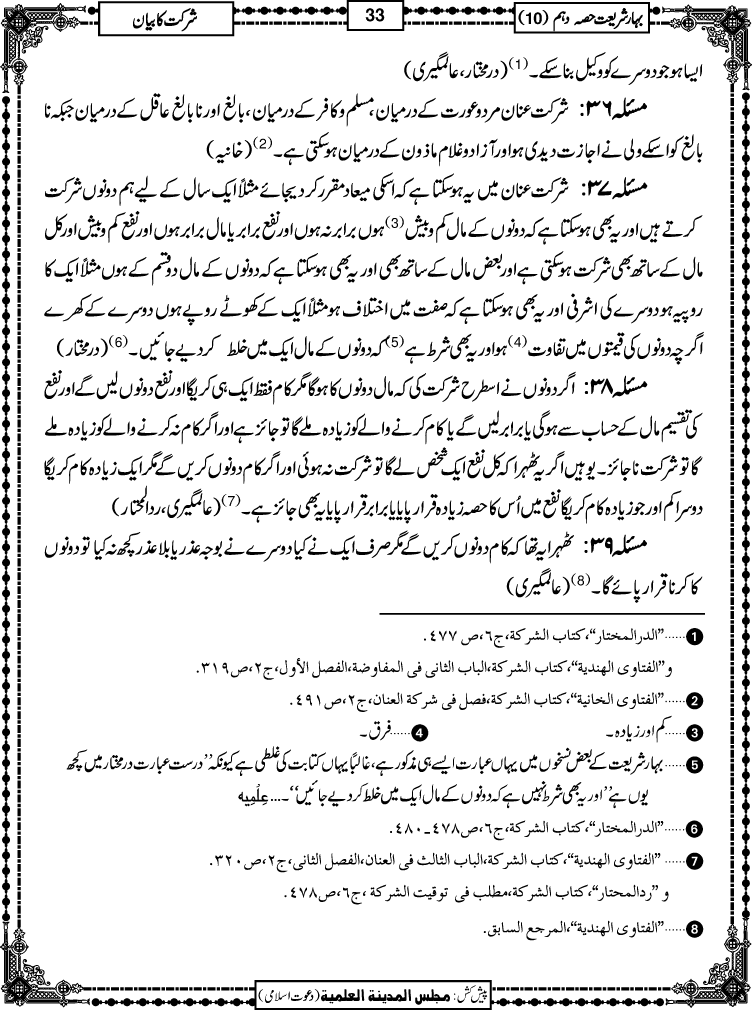 بہار شریعت حصہ دہم (10)
33
شرکت کا بیان
ایسا ہو جو دوسرے کو وکیل بنا سکے۔(1) (درمختار، عالمگیری)
مسئلہ ۳۶: شرکت عنان مرد و عورت کے درمیان، مسلم و کافر کے درمیان، بالغ اور نا بالغ عاقل کے درمیان جبکہ نا
بالغ کو اسکے ولی نے اجازت دیدی ہو اور آزاد و غلام ماذون کے درمیان ہو سکتی ہے۔(2) (خانیہ)
مسئلہ ۳۷: شرکت عنان میں یہ ہو سکتا ہے کہ اسکی میعاد مقرر کر دیجائے مثلاً ایک سال کے لیے ہم دونوں شرکت
کرتے ہیں اور یہ بھی ہو سکتا ہے کہ دونوں کے مال کم و بیش(3) ہوں برابر نہ ہوں اور نفع برابر یا مال برابر ہوں اور نفع کم و بیش اور کل
مال کے ساتھ بھی شرکت ہو سکتی ہے اور بعض مال کے ساتھ بھی اور یہ بھی ہو سکتا ہے کہ دونوں کے مال دو قسم کے ہوں مثلاً ایک کا
روپیہ ہو دوسرے کی اشرفی اور یہ بھی ہو سکتا ہے کہ صفت میں اختلاف ہو مثلاً ایک کے کھوٹے روپے ہوں دوسرے کے کھرے
اگرچہ دونوں کی قیمتوں میں تفاوت(4) ہو اور یہ بھی شرط ہے(5) کہ دونوں کے مال ایک میں خلط کر دیے جائیں۔(6) (درمختار)
مسئلہ ۳۸: اگر دونوں نے اسطرح شرکت کی کہ مال دونوں کا ہوگا مگر کام فقط ایک ہی کریگا اور نفع دونوں لیں گے اور نفع
کی تقسیم مال کے حساب سے ہوگی یا برابر لیں گے یا کام کرنے والے کو زیادہ ملے گا تو جائز ہے اور اگر کام نہ کرنے والے کو زیادہ ملے
گا تو شرکت ناجائز۔ یوہیں اگر یہ ٹھہرا کہ کل نفع ایک شخص لے گا تو شرکت نہ ہوئی اور اگر کام دونوں کریں گے مگر ایک زیادہ کام کریگا
دوسرا کم اور جو زیادہ کام کریگا نفع میں اُس کا حصہ زیادہ قرار پایا یا برابر قرار پایا یہ بھی جائز ہے۔(7) (عالمگیری، ردالمحتار)
مسئلہ ۳۹: ٹھہرا یہ تھا کہ کام دونوں کریں گے مگر صرف ایک نے کیا دوسرے نے بوجہ عذر یا بلا عذر کچھ نہ کیا تو دونوں
کا کرنا قرار پائے گا۔(8) (عالمگیری)
1 ......"الدرالمختار"، کتاب الشرکة، ج٦، ص ٤٧٧.
و"الفتاوی الهندیة"، کتاب الشرکة، الباب الثانی فی المفاوضة، الفصل الأول، ج٢، ص٣١٩.
2 ......"الفتاوی الخانیة"، کتاب الشرکة، فصل فی شرکة العنان، ج٢، ص٤٩١.
3 ......کم اور زیادہ۔ 4 ......فرق۔
5 ......بہار شریعت کے بعض نسخوں میں یہاں عبارت ایسے ہی مذکور ہے، غالبًا یہاں کتابت کی غلطی ہے کیونکہ "درست عبارت درمختار میں کچھ
یوں ہے "اور یہ بھی شرط نہیں ہے کہ دونوں کے مال ایک میں خلط کر دیے جائیں"۔... عِلْمِیہ
6 ......"الدرالمختار"، کتاب الشرکة، ج٦، ص٤٧٨-٤٨٠.
7 ......"الفتاوی الهندیة"، کتاب الشرکة، الباب الثالث فی العنان، الفصل الثانی، ج٢، ص٣٢٠.
و "ردالمحتار"، کتاب الشرکة، مطلب فی توقیت الشرکة، ج٦، ص٤٧٨.
8 ......"الفتاوی الهندیة"، المرجع السابق.
پیش کش: مجلس المدینة العلمیة (دعوت اسلامی)